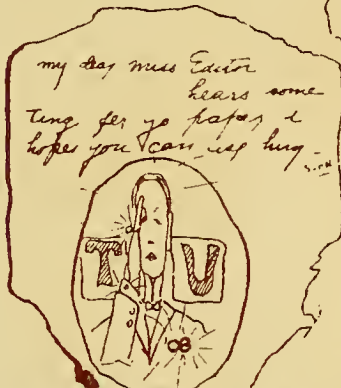 my dear miss Editor
hears some
ting fer yo paper i
hopes you can use hur
T U
'08